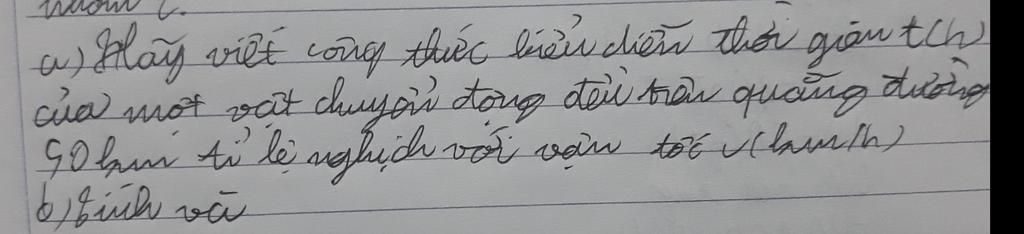 a) Hãy viết công thức biểu diễn thời gian t(h)
của một vật chuyển động đều trên quãng đường
50km tỉ lệ nghịch với vận tốc v(km/h)
b) tính và